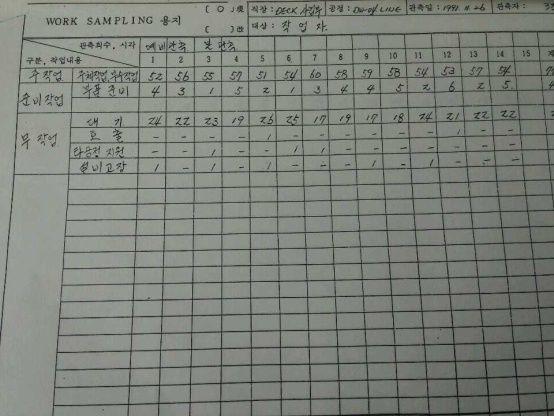 WORK SAMPLING 용지
( O ) 現
( ) 改
직장: DECK 공정: DW-04 LINE 관측일: 1991. 11. 26 관측자:
대상: 작업자
관측회수, 시각 예비관측 본관측
구분, 작업내용 1 2 3 4 5 6 7 8 9 10 11 12 13 14 15
주작업 52 56 55 57 51 54 60 58 59 58 54 53 57 54
준비작업 부품 준비 4 3 1 5 2 1 3 4 4 5 2 6 2 5
무작업 대기 24 22 23 19 26 25 17 19 17 18 24 21 22 22
호출 - - - - 1 - - - - - - 1 - -
타공정 지원 - - 1 - - 1 1 - - - - - - -
설비고장 1 - 1 - 1 - - - 1 - 1 - - -